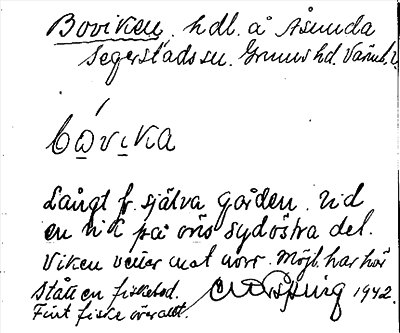 Boviken, hdl. å Åsunda
Segerstads sn. Grums hd. Värml.
bóvika
Långt fr. själva gården. Vid
en vik på öns sydöstra del.
Viken vetter mot norr. Möjl. har här
stått en fiskebod. 1942.
Fint fiske överallt.